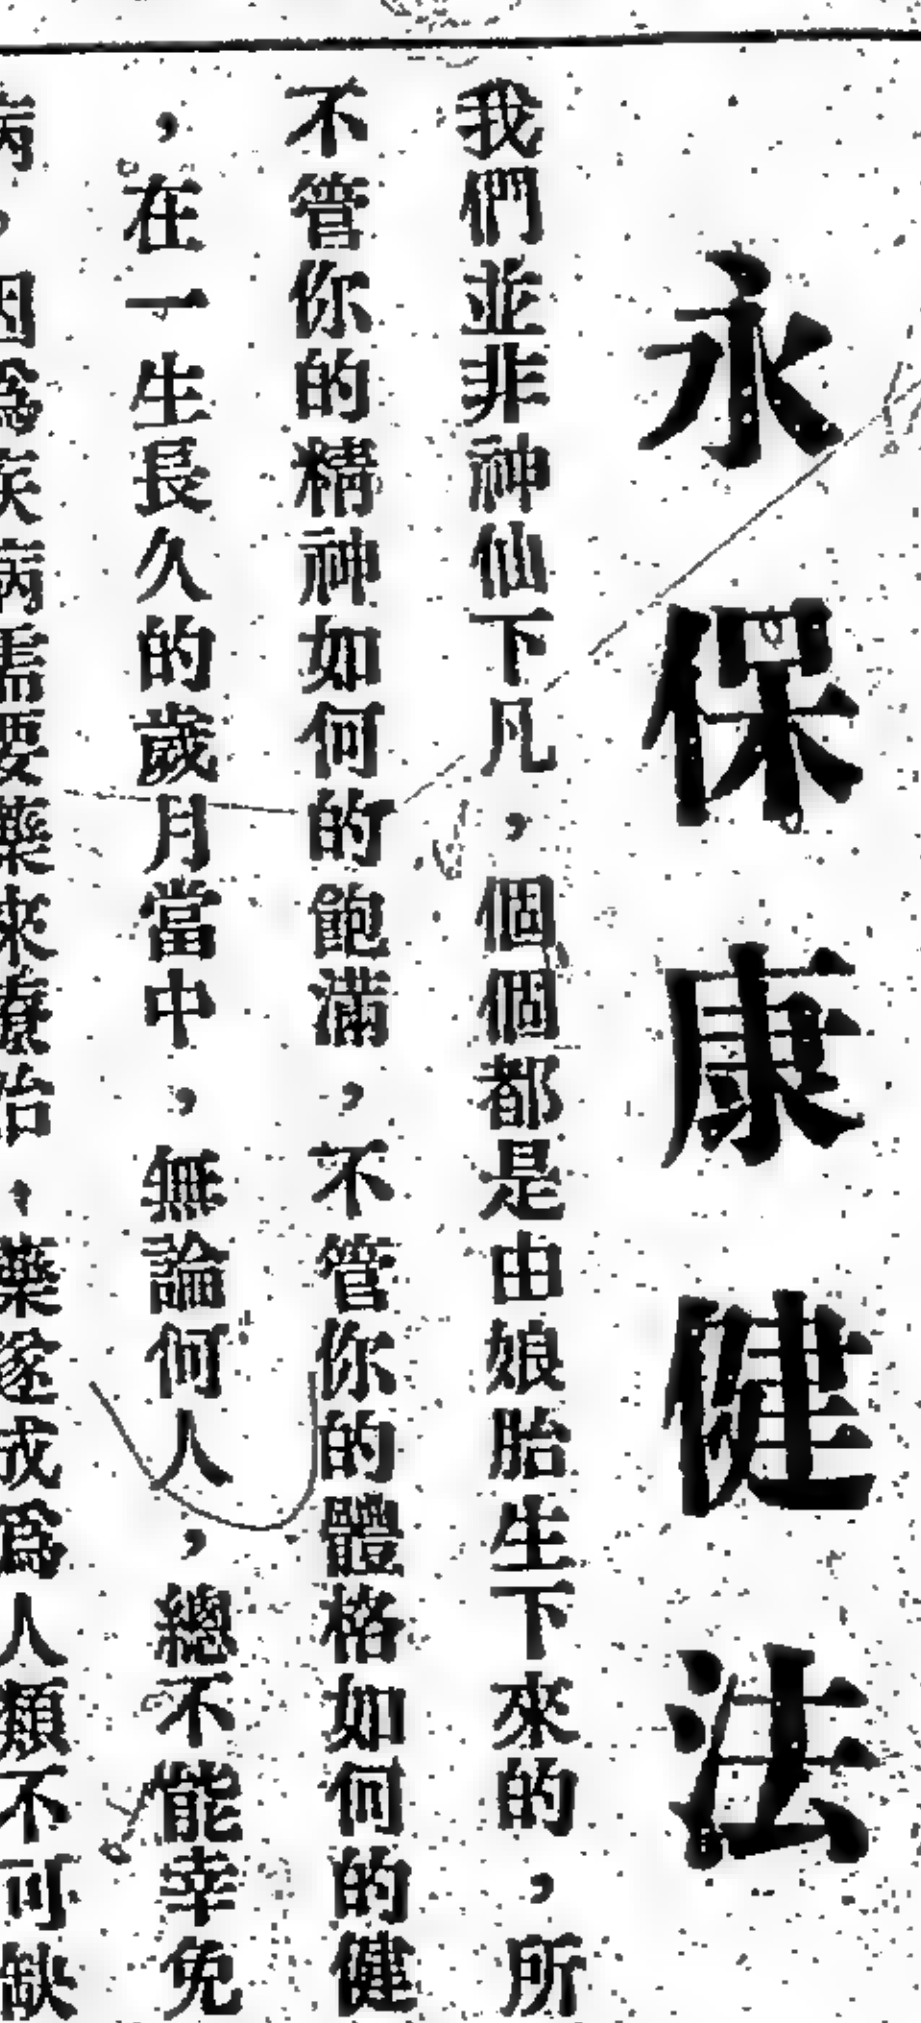 永保康健法
我們並非神仙下凡，個個都是由娘胎生下來的，所
不管你的精神如何的飽滿，不管你的體格如何的健
，在一生長久的歲月當中，無論何人，總不能幸免
病，因爲疾病需要藥來養治，藥遂成爲人類不可缺